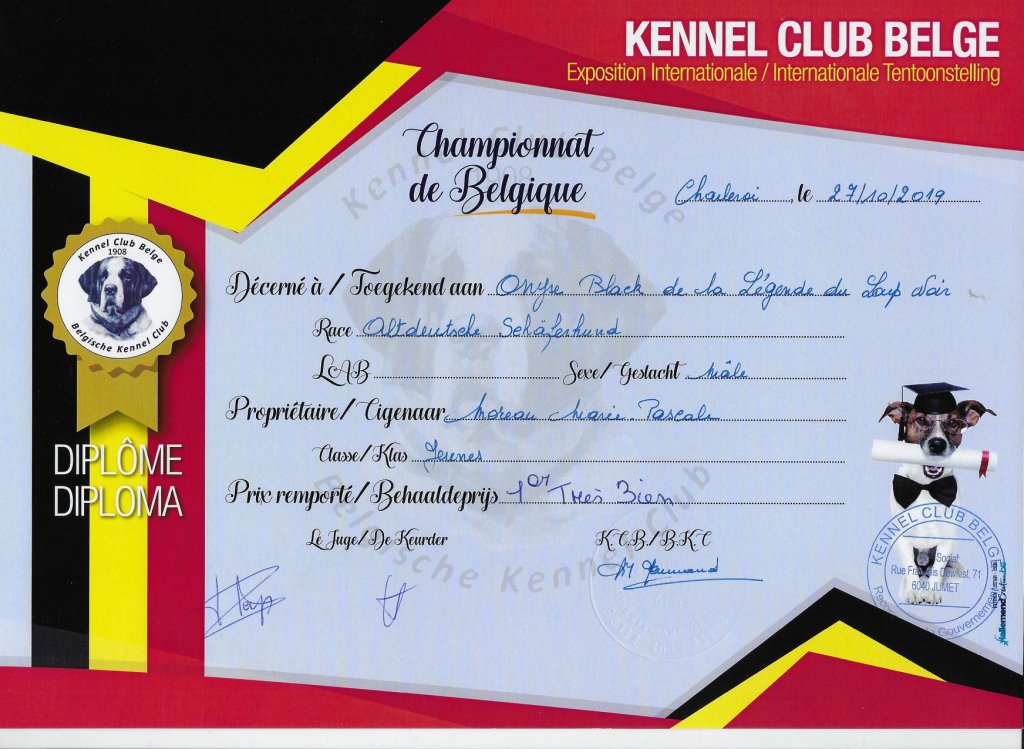 KENNEL CLUB BELGE
Exposition Internationale / Internationale Tentoonstelling
Championnat
de Belgique
Charleroi, le 27/10/2019
Kennel Club Belge
1908
Belgische Kennel Club
Décerné à / Toegekend aan Onyse Black de la Légende du Loup Noir
Race Altdeutsche Schäferhund
LAB
Sexe/ Geslacht Mâle
Propriétaire/ Eigenaar Moreau Marie-Pascale
Classe/Klas Jeunes
Prix remporté/Behaaldeprijs 1er Très Bien
DIPLÔME
DIPLOMA
Le Juge/De Keurder
K.C.B./B.K.C
KENNEL CLUB BELGE
Social:
Dewiest, 71
6040 JUMET
Kennel Club Belge
Belgische Kennel Club